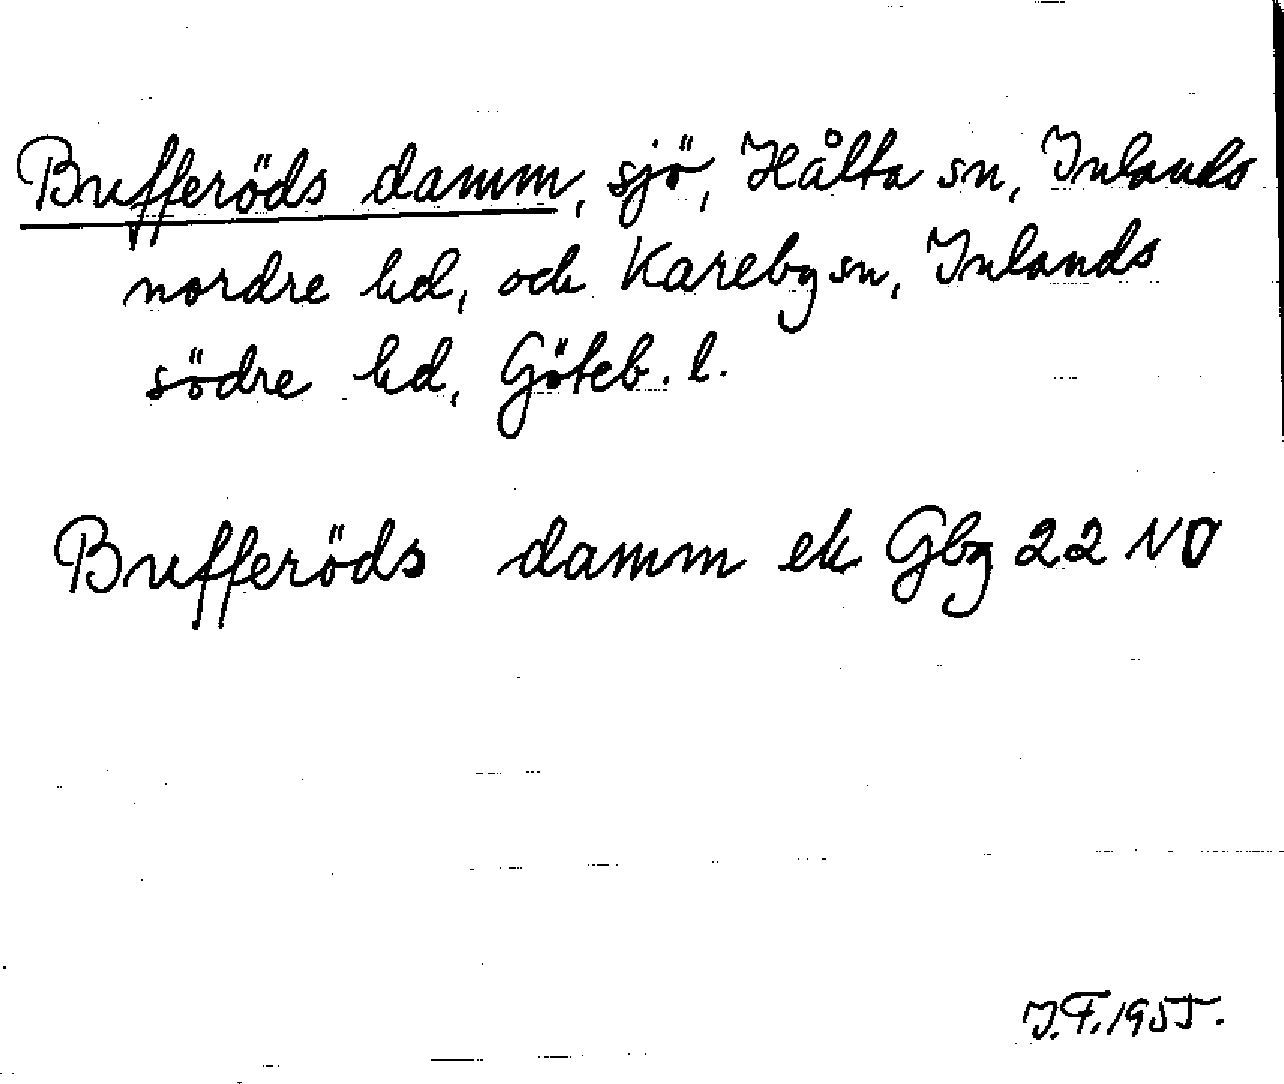 Bufferöds damm, sjö, Hålta sn, Inlands
nordre hd, och Kareby sn, Inlands
södre hd, Göteb. l.
Bufferöds damm ek Gbg 22 NO
I.F. 1955.